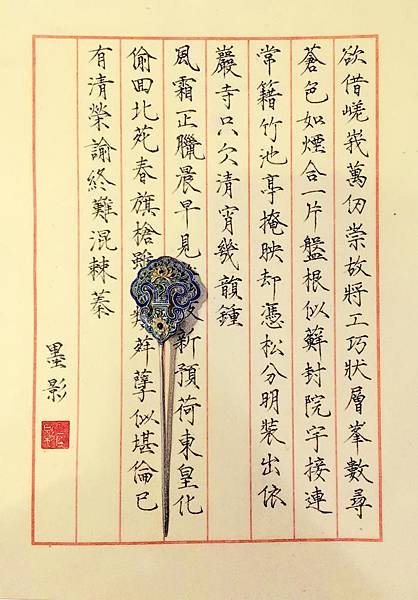 欲借嵯峩萬仞崇故將工巧狀層峯數尋
蒼色如煙合一片盤根似蘚封院宇接連
常籍竹池亭掩映却憑松分明裝出依
巖寺只欠清宵幾韻鍾
風霜正臘晨早見新預荷東皇化
偷囬北苑春旗槍雖類荈孽似堪倫已
有清榮諭終難混棘蓁
墨影